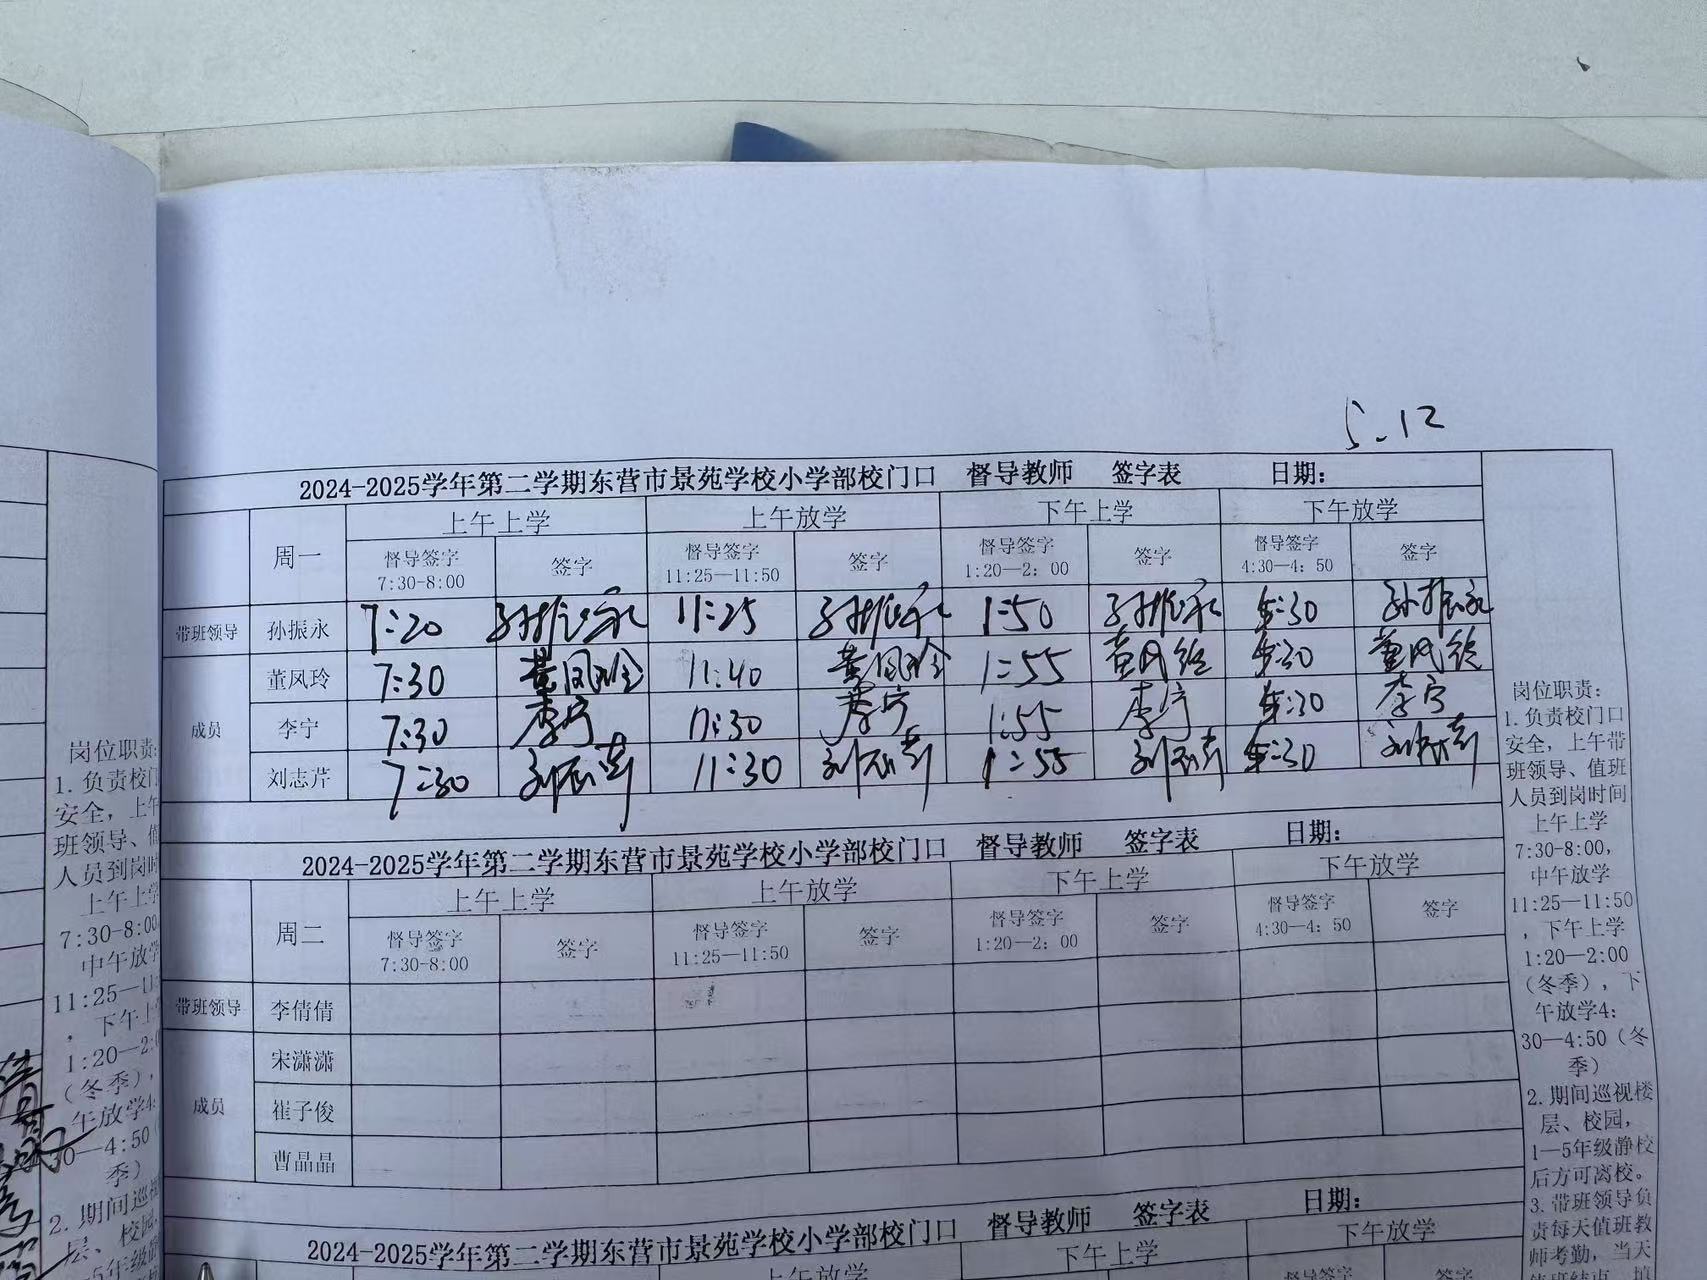 5.12
2024-2025学年第二学期东营市景苑学校小学部校门口 督导教师 签字表 日期:
周一 上午上学 上午放学 下午上学 下午放学
督导签字 签字 督导签字 签字 督导签字 签字 督导签字 签字
7:30-8:00 11:25—11:50 1:20—2: 00 4:30—4: 50
带班领导 孙振永 7:20 孙振永 11:25 孙振永 1:50 孙振永 :30 孙振永
成员
董凤玲 7:30 董凤玲 11:40 董凤玲 1:55 董凤玲 :30 董凤玲
李宁 7:30 李宁 11:30 李宁 1:55 李宁 :30 李宁
刘志芹 7:30 刘志芹 11:30 刘志芹 1:55 刘志芹 :30 刘志芹
2024-2025学年第二学期东营市景苑学校小学部校门口 督导教师 签字表 日期:
周二 上午上学 上午放学 下午上学 下午放学
督导签字 签字 督导签字 签字 督导签字 签字 督导签字 签字
7:30-8:00 11:25—11:50 1:20—2: 00 4:30—4: 50
带班领导 李倩倩
成员
宋潇潇
崔子俊
曹晶晶
2024-2025学年第二学期东营市景苑学校小学部校门口 督导教师 签字表 日期:
上午放学 下午上学 下午放学
督导签字 签字
岗位职责:
1.负责校门口
安全，上午带
班领导、值班
人员到岗时间
上午上学
7:30-8:00，
中午放学
11:25—11:50
，下午上学
1:20—2:00
（冬季），下
午放学4:
30—4:50（冬
季）
2.期间巡视楼
层、校园，
1—5年级静校
后方可离校。
3.带班领导负
责每天值班教
师考勤，当天
岗位职责
1.负责校门
安全，上午
班领导、值
人员到岗时
上午上学
7:30-8:00
中午放学
11:25—11:
，下午上
1:20—2:0
（冬季），
午放学4:
30—4:50（
季）
2.期间巡视
层、校园
5年级静